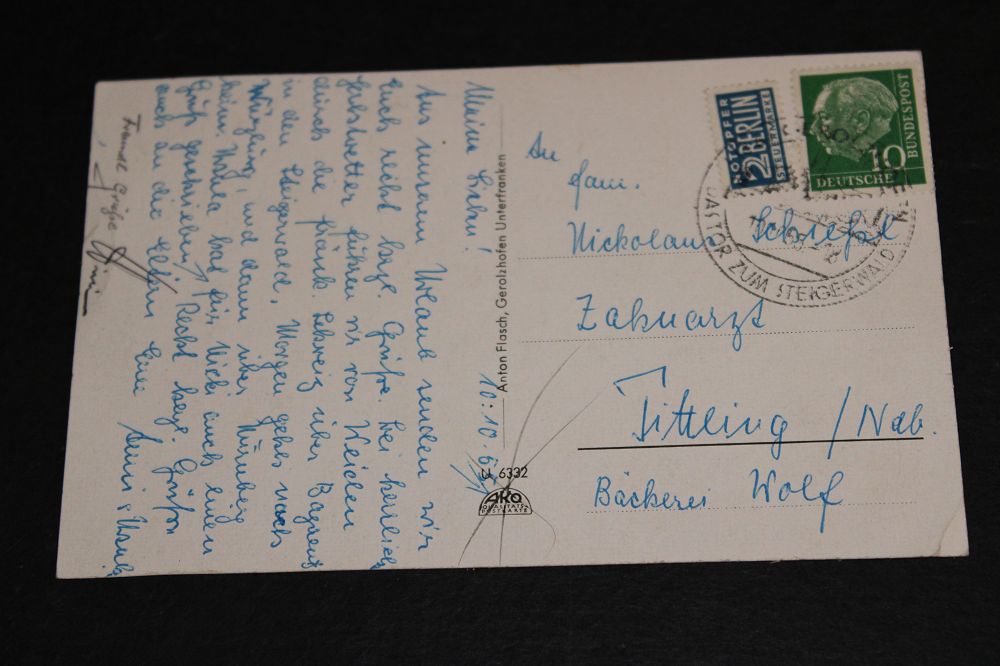 10.10.5
Meine Lieben!
Aus unserem Urlaub senden wir
Euch recht herzl. Grüße. Bei herrlich
Herbstwetter führen wir von Weiden
durch die fränk. Schweiz über Bayreuth
in den Steigerwald. Morgen gehts nach
Würzburg und dann über Nürnberg
heim. Maria hat für Nicki auch einen
Gruß geschrieben. Recht herzl. Grüße
auch an die Eltern Eure
Frandl Grüße
Anton Flasch, Gerolzhofen Unterfranken
U 6332
AKO
QUALITÄTS
POSTKARTE
NOTOPFER
2 BERLIN
STEUERMARKE
10
DEUTSCHE
BUNDESPOST
DAS TOR ZUM STEIGERWALD
An
Fam.
Nickolaus Schießl
Zahnarzt
Tittling / Nab.
Bäckerei Wolf